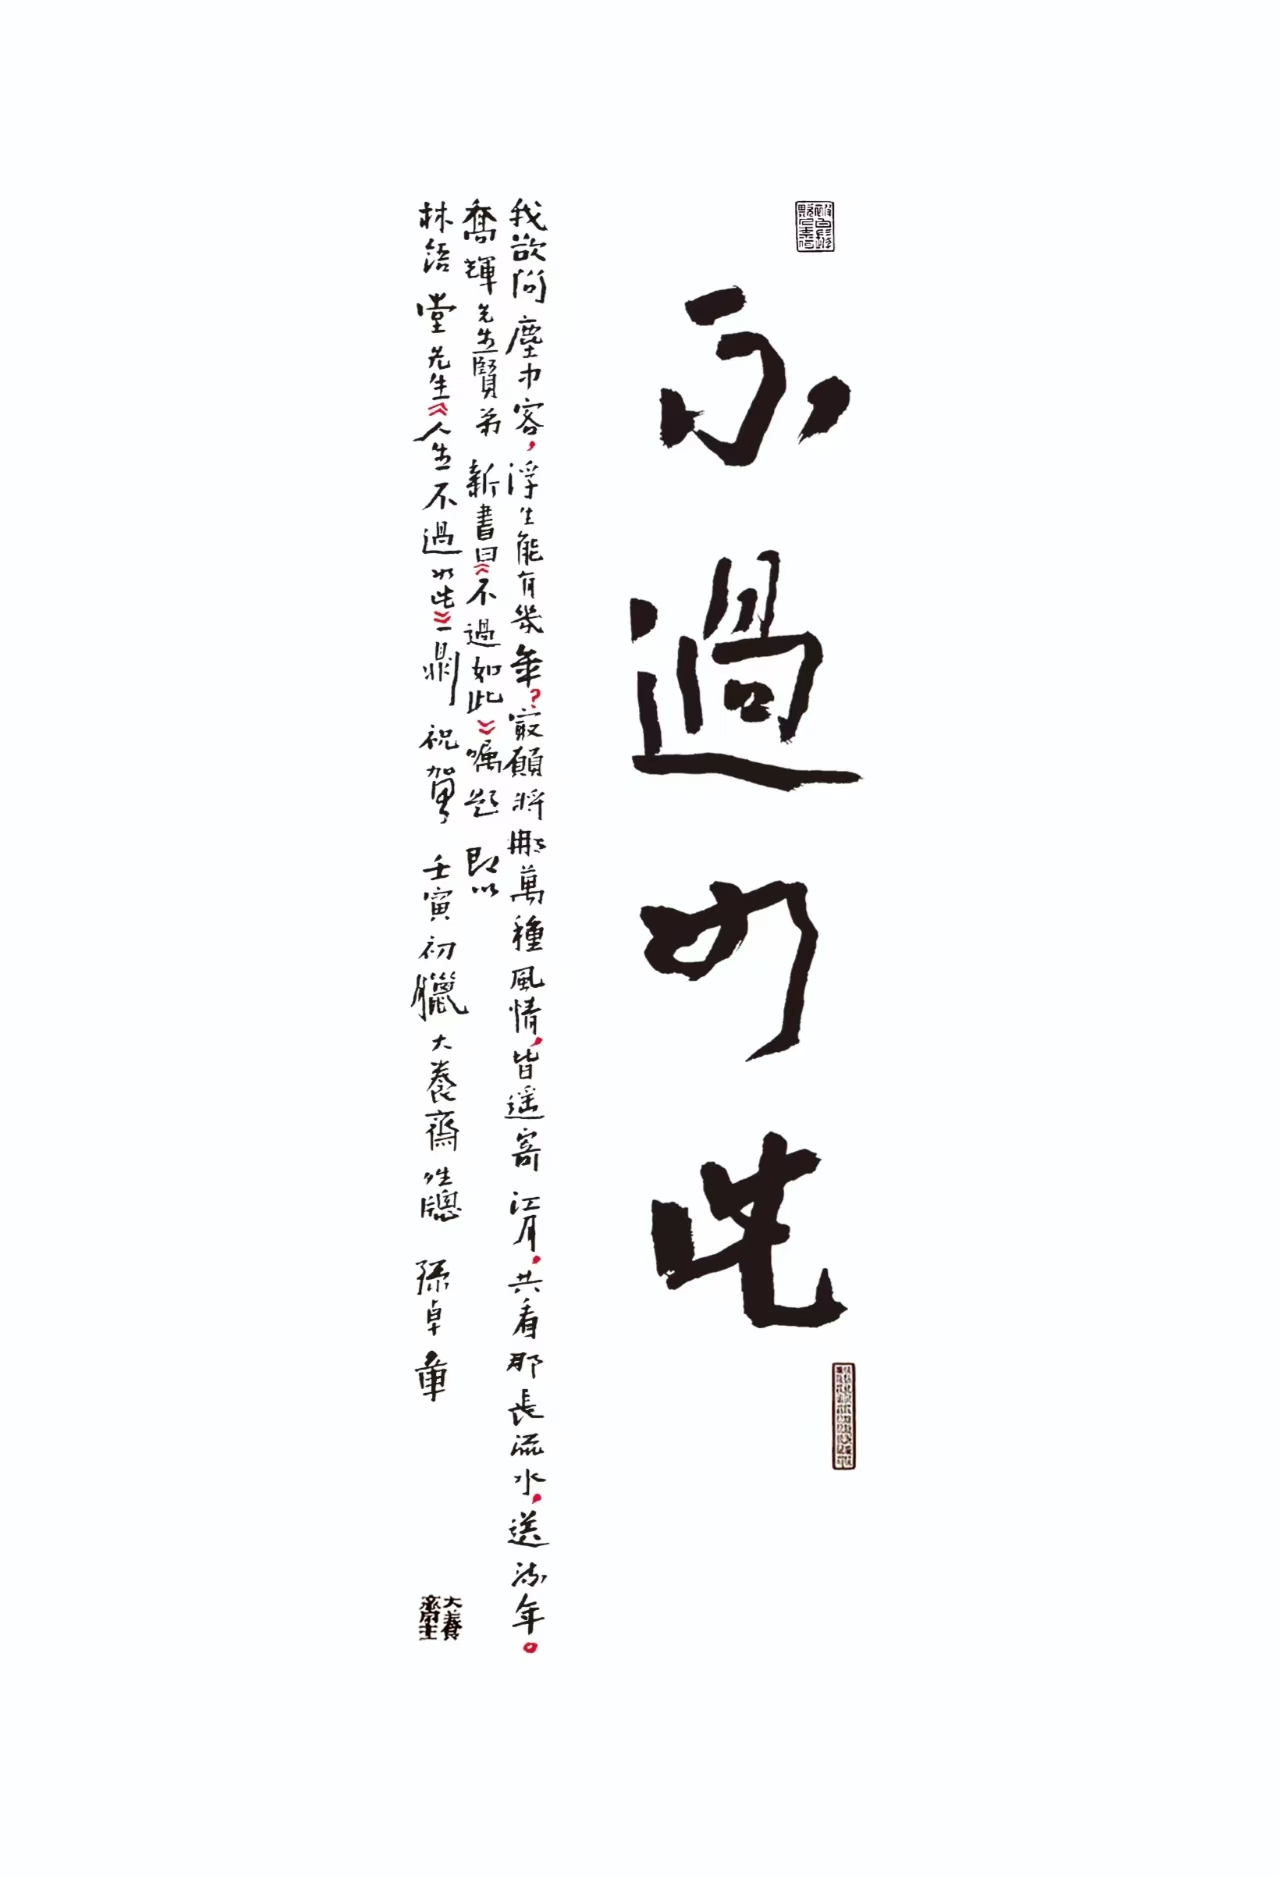 不過如此
我欲問塵中客，浮生能有幾年？寂願將那萬種風情，皆遥寄江月，共看那長流水，送流年。
喬輝先生賢弟新書曰《不過如此》嘱題即以
林語堂先生《人生不過如此》一鼎祝賀壬寅初臘大養齋牲牕孫卓章
大養齋主